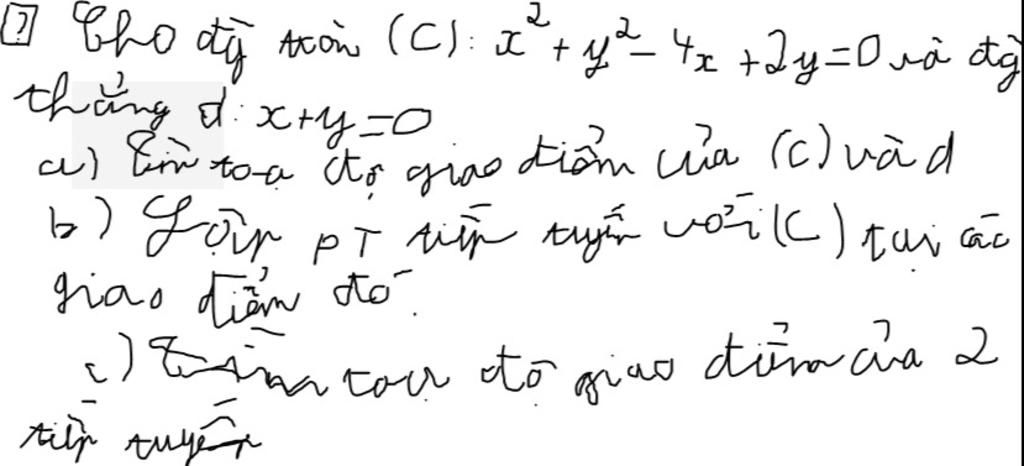 ? Cho đg tròn (C): x² + y² - 4x + 2y = 0 và đg
thẳng d: x+y=0
a) Tìm toạ độ giao điểm của (C) và d
b) Lập PT tiếp tuyến với (C) tại các
giao điểm đó.
c) Tìm toạ độ giao điểm của 2
tiếp tuyến